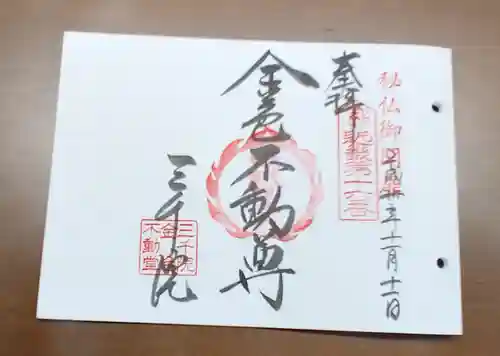 秘仏御開扉
平成
年十一月十一日
奉拝
第十六番
金色不動尊
三千院
三千院
金色
不動堂